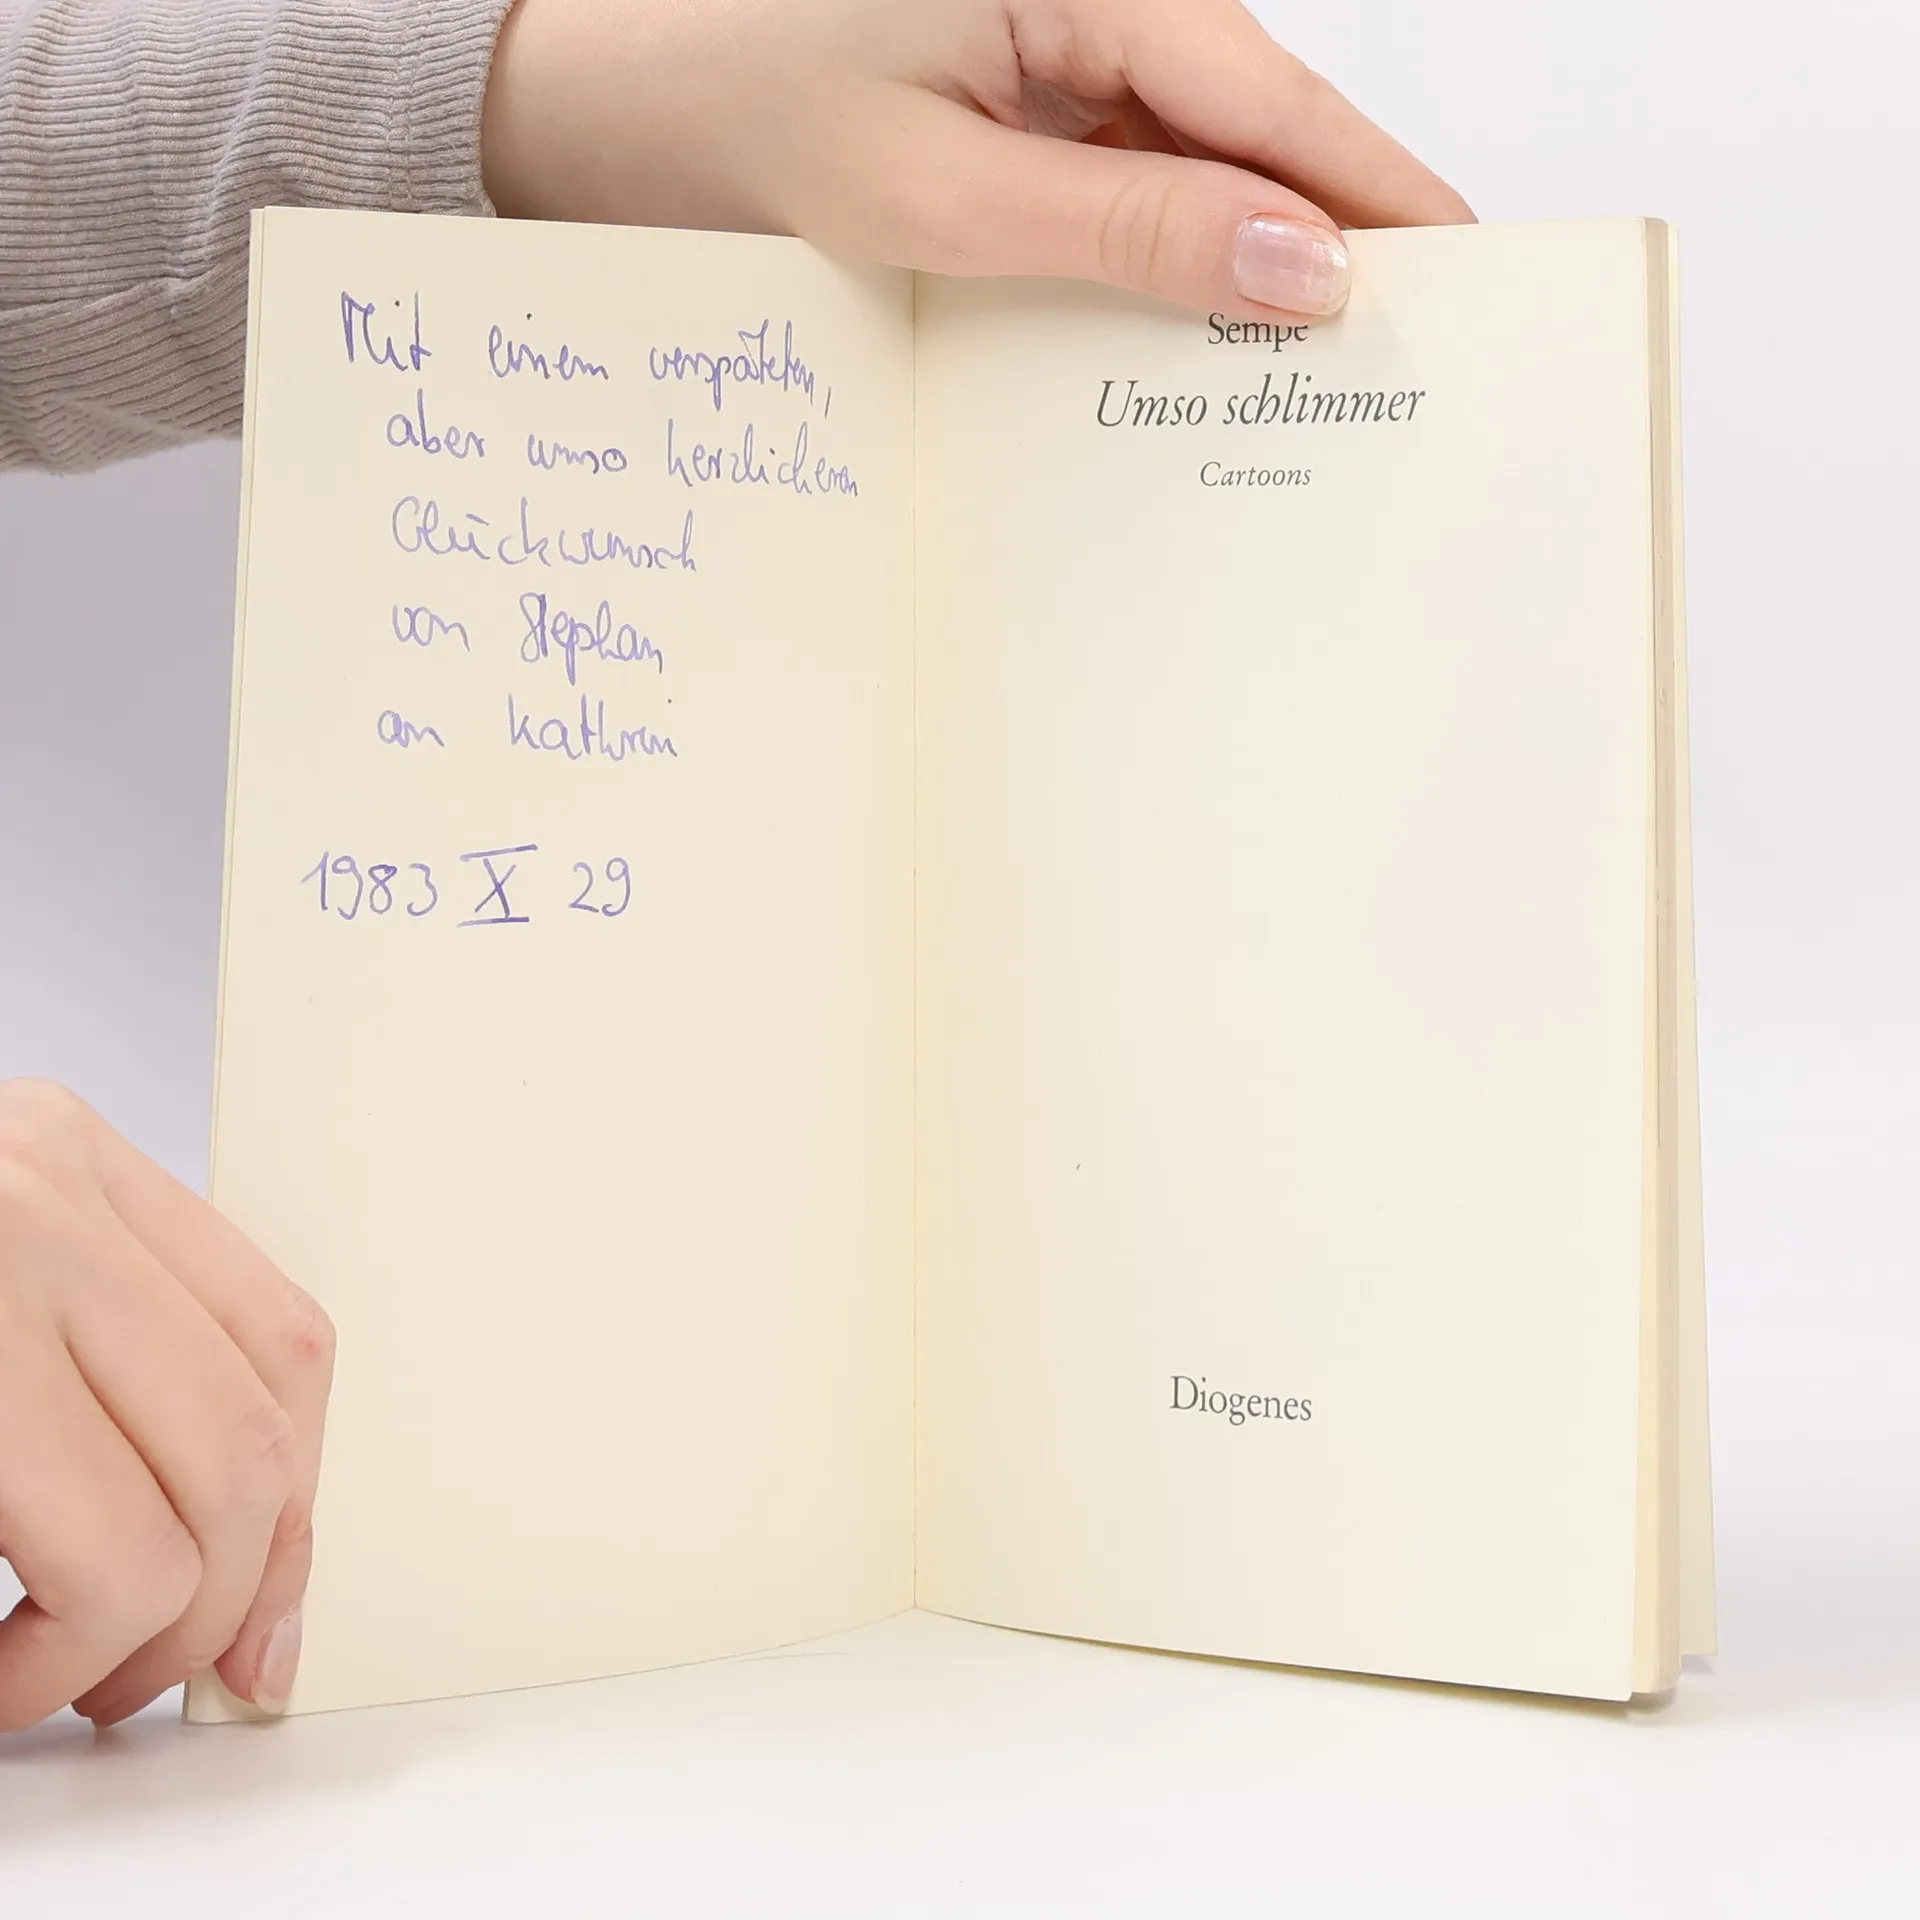 Mit einem verspäteten,
aber umso herzlicheren
Glückwunsch
von Stephan
an Kathrin
1983 X 29
Sempé
Umso schlimmer
Cartoons
Diogenes